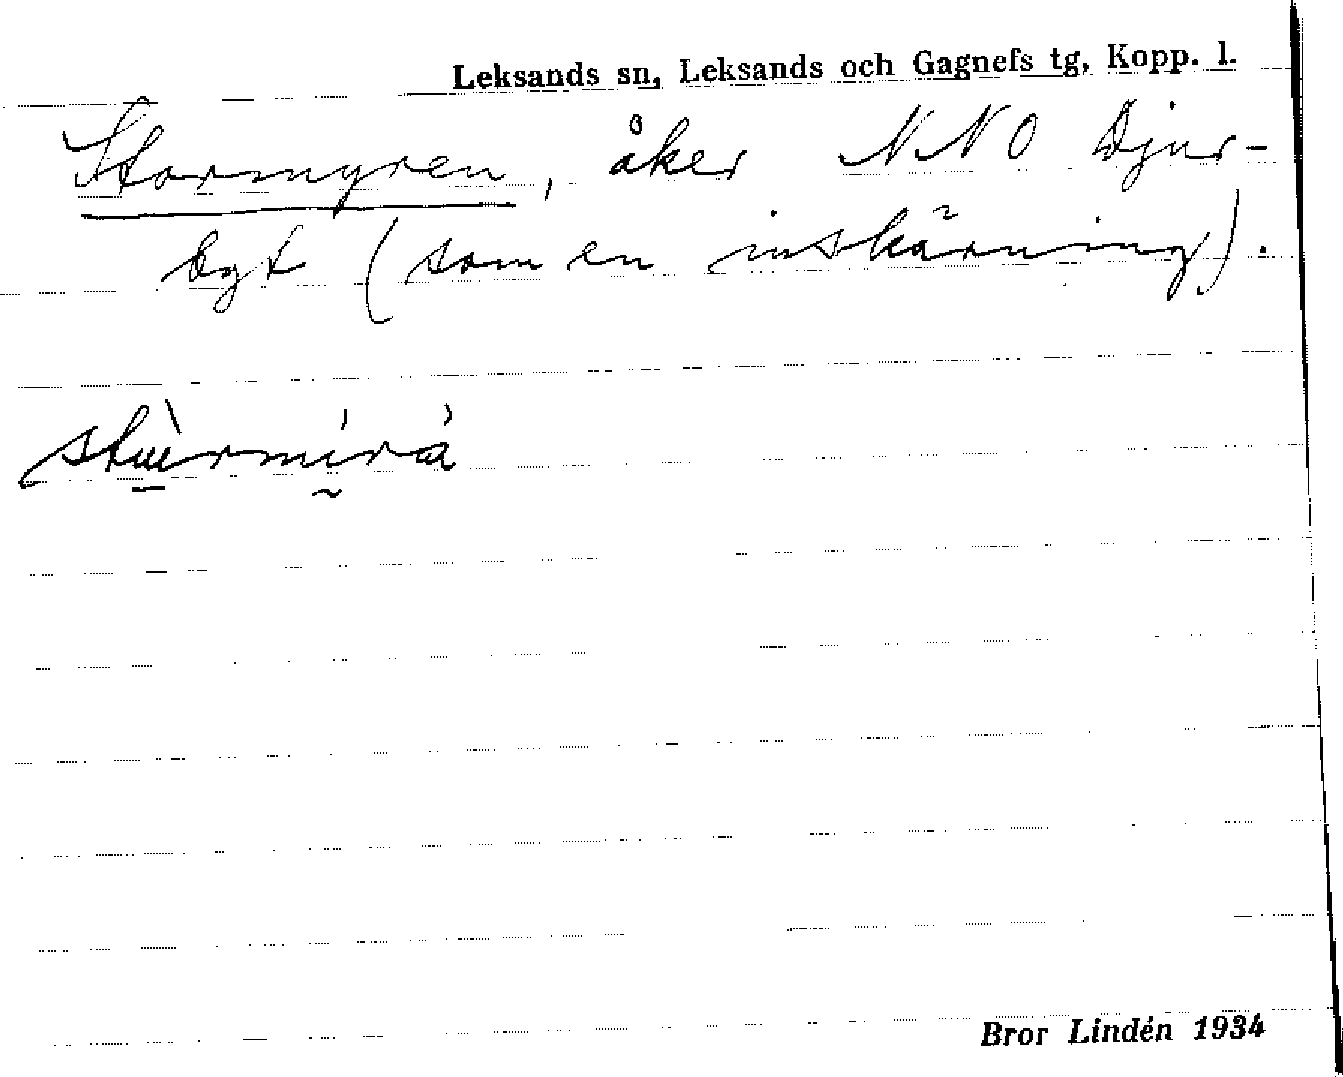 Leksands sn, Leksands och Gagnefs tg, Kopp. l.
Stormyren, åker NNO Djur-
byt (som en inskärning).
Bror Lindén 1934